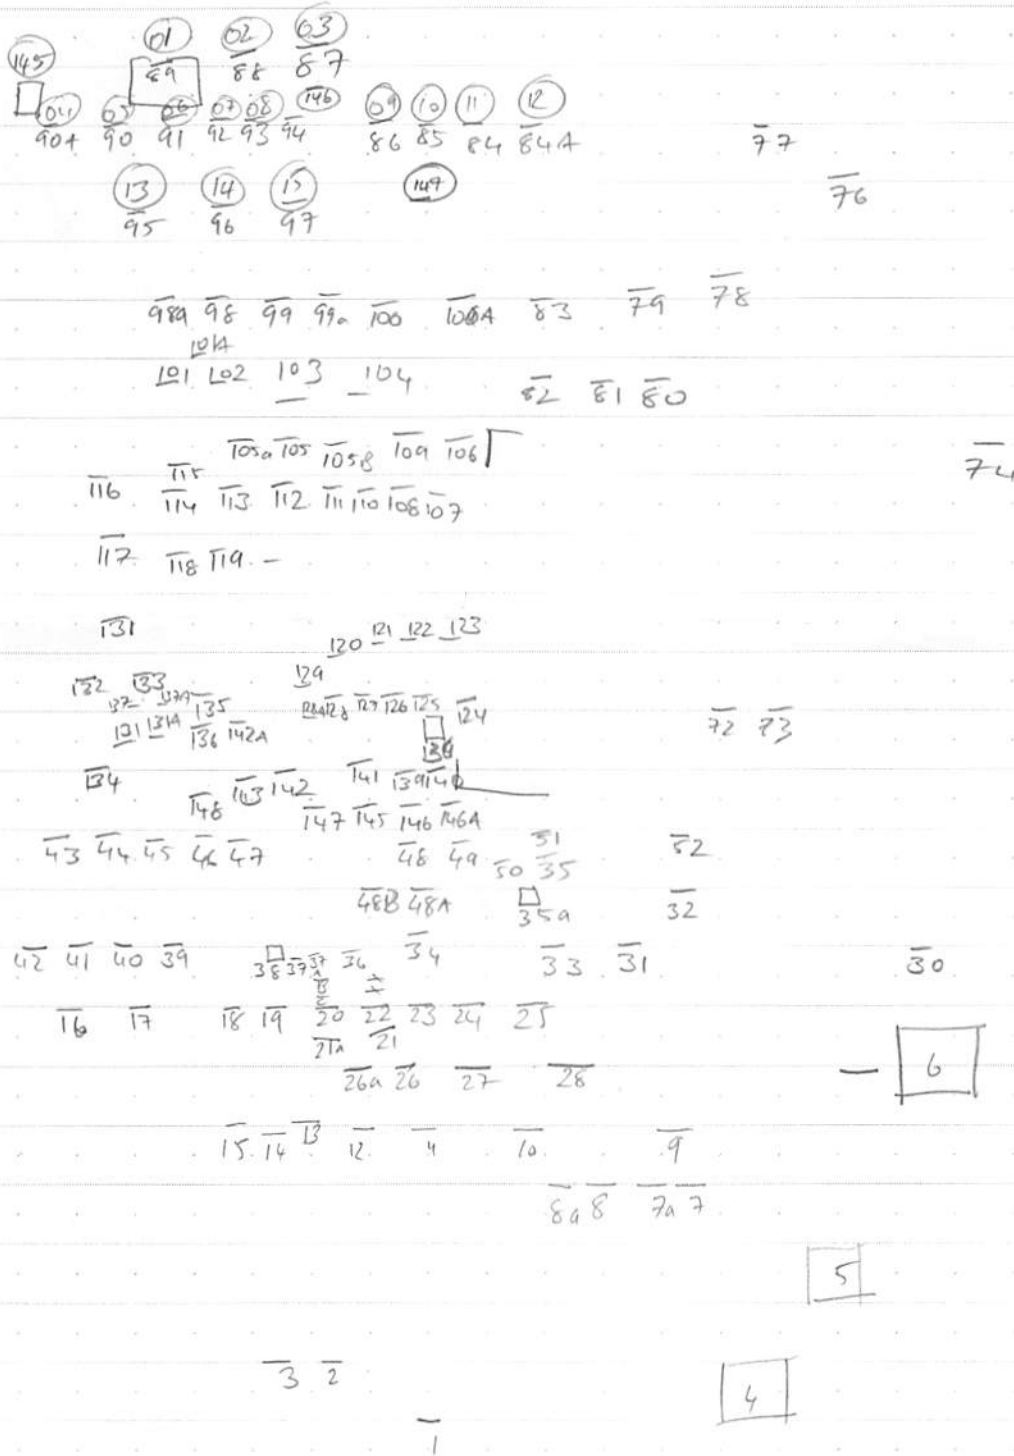 01 02 03
145 89 88 87
04 05 06 07 08 146 09 10 11 12
90A 90 91 92 93 94 86 85 84 84A 77
13 14 15 147 76
95 96 97
98a 98 99 99a 100 100A 83 79 78
101A
101 102 103 104 82 81 80
105a 105 105B 109 106 74
115
116 114 113 112 111 110 108 107
117 118 119
131 120 121 122 123
129
132 133
137 137A 135 128A 128 127 126 125 124 72 73
131 131A 136 142A 138
134 148 143 142 141 139 140
147 145 146 146A
43 44 45 46 47 48 49 50 51 35 52
48B 48A 35a 32
42 41 40 39 38 37 37A 36 34 33 31 30
16 17 18 19 20 22 23 24 25
21A 21
26a 26 27 28 6
15 14 13 12 10 9
8a 8 7a 7
5
3 2 4
1